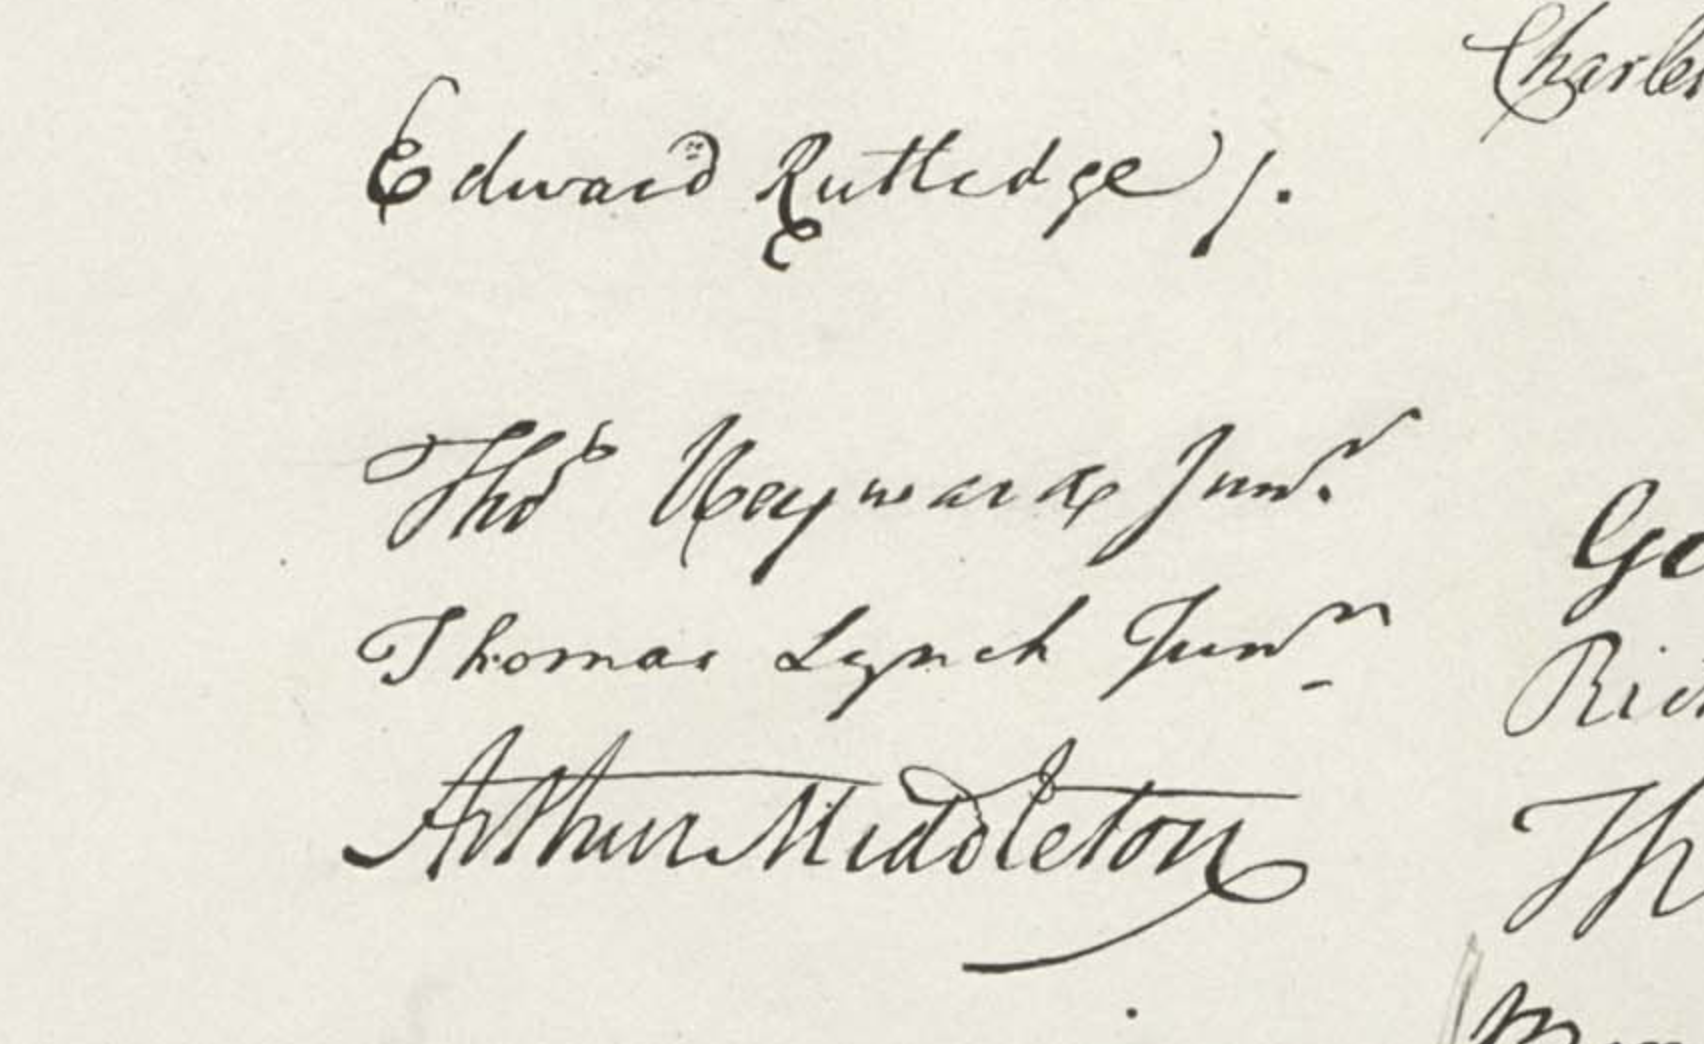 Edward Rutledge /.
Thos Heyward Junr.
Thomas Lynch Junr
Arthur Middleton
Charles
Ge
Rich
Th